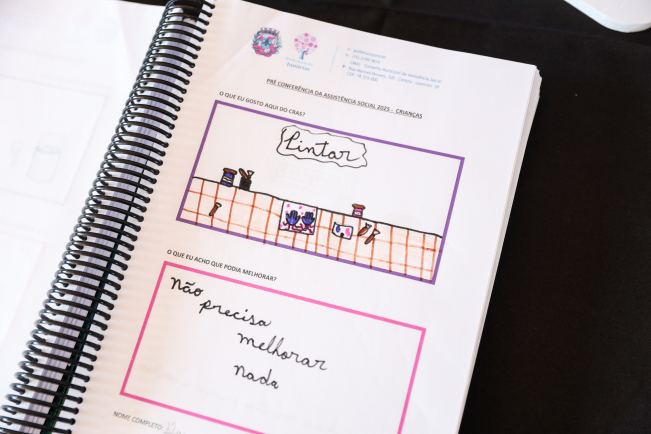 PRÉ CONFERÊNCIA DA ASSISTÊNCIA SOCIAL 2025 – CRIANÇAS
O QUE EU GOSTO AQUI DO CRAS?
Pintar
O QUE EU ACHO QUE PODIA MELHORAR?
Não
precisa
melhorar
nada
NOME COMPLETO: